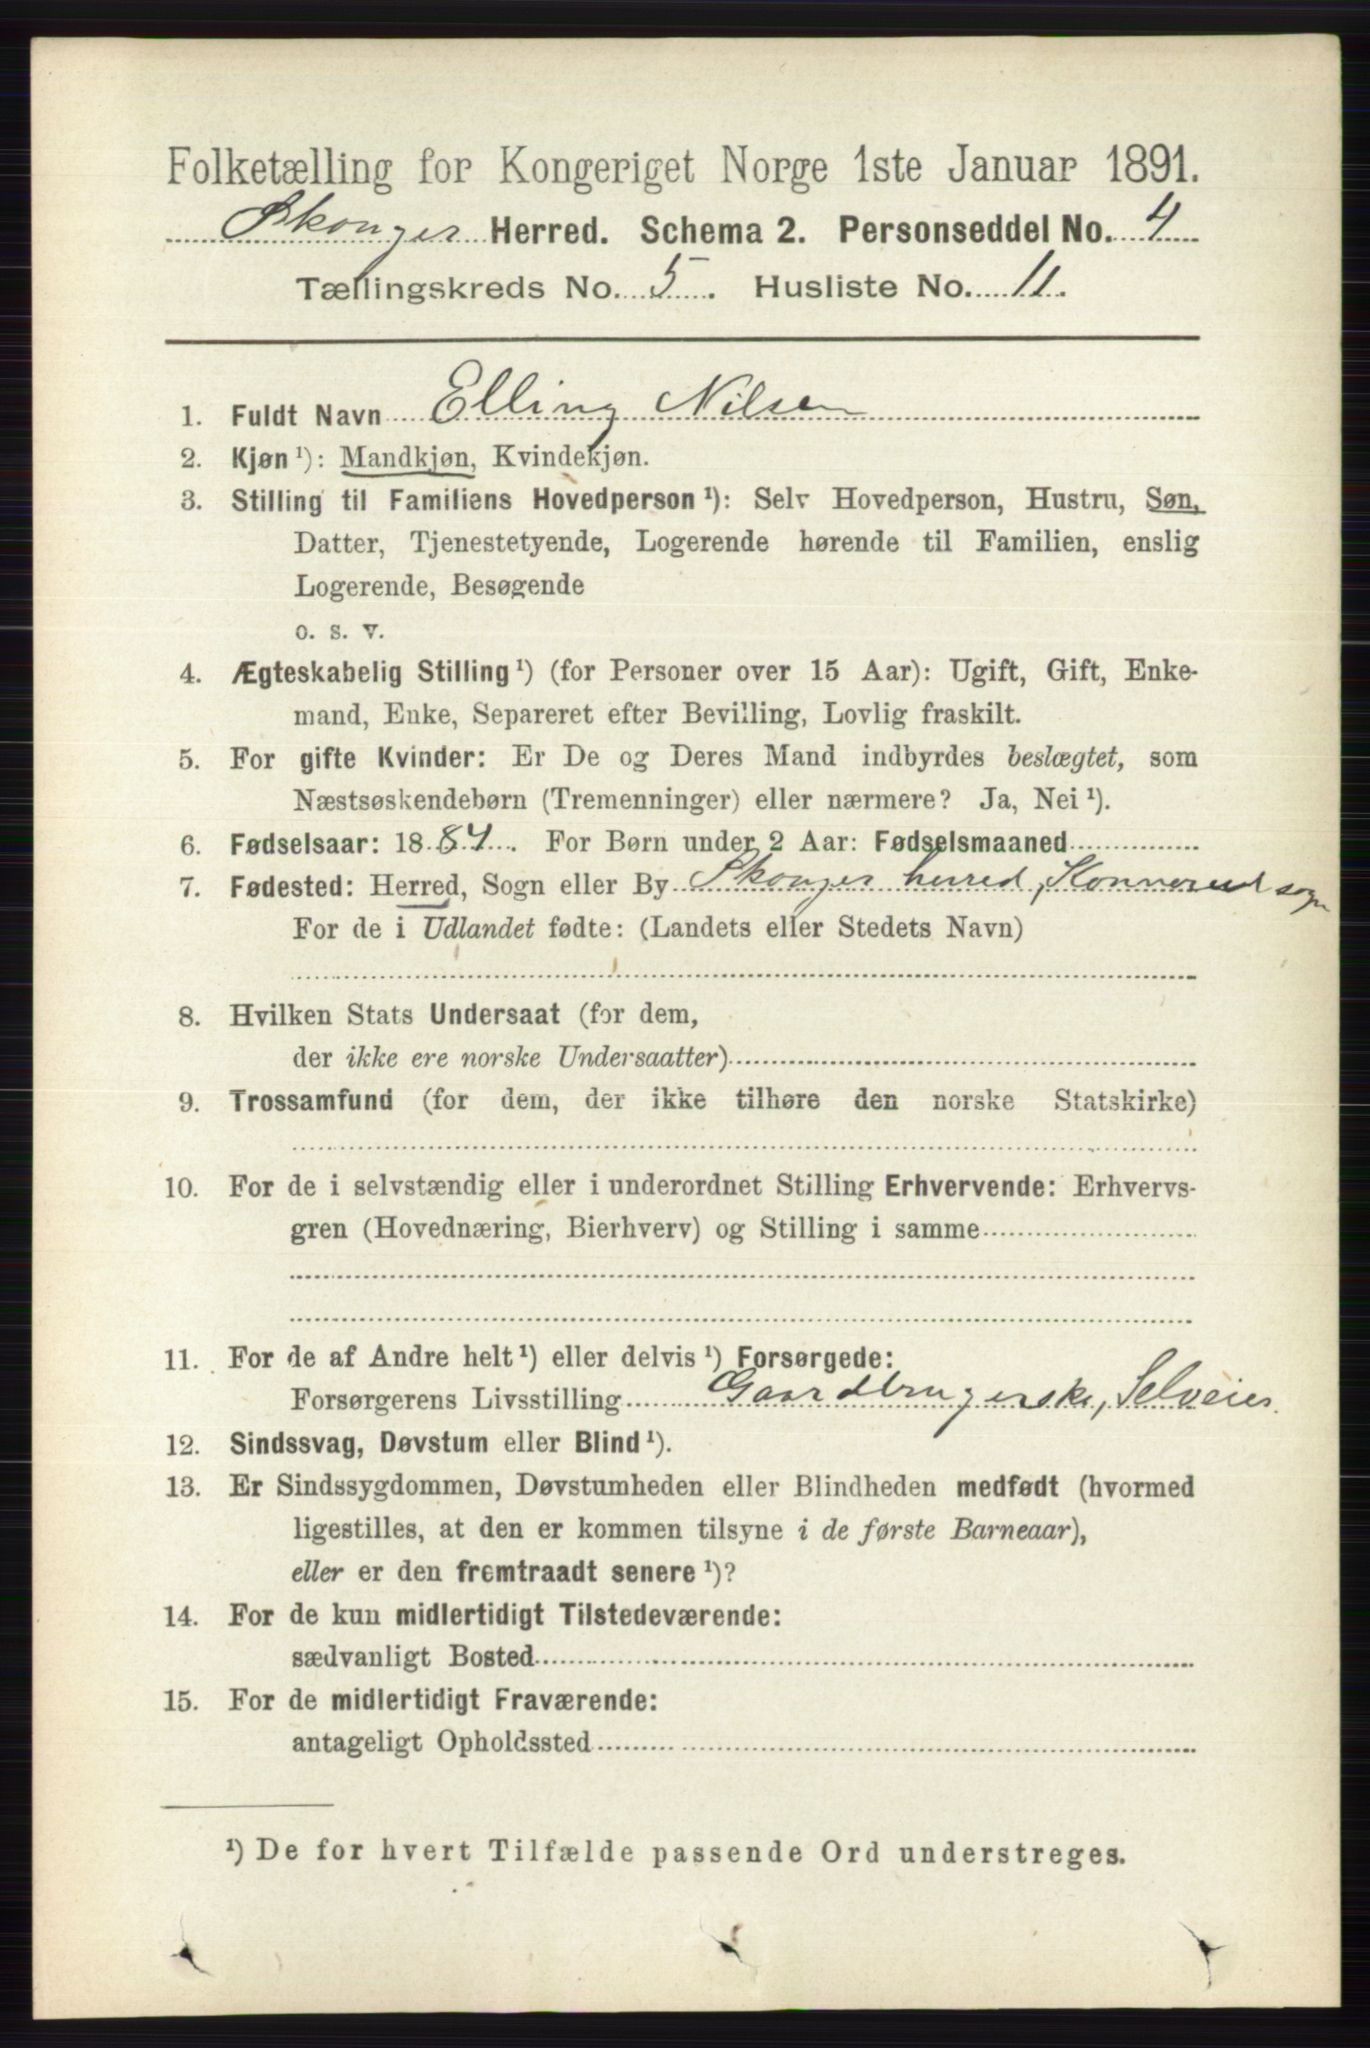 Folketælling for Kongeriget Norge 1ste Januar 1891.
Skonger Herred. Schema 2. Personseddel No. 4
Tællingskreds No. 5. Husliste No. 11.
1. Fuldt Navn Elling Nilsen
2. Kjøn ¹): Mandkjøn, Kvindekjøn.
3. Stilling til Familiens Hovedperson ¹): Selv Hovedperson, Hustru, Søn,
Datter, Tjenestetyende, Logerende hørende til Familien, enslig
Logerende, Besøgende
o. s. v.
4. Ægteskabelig Stilling ¹) (for Personer over 15 Aar): Ugift, Gift, Enke-
mand, Enke, Separeret efter Bevilling, Lovlig fraskilt.
5. For gifte Kvinder: Er De og Deres Mand indbyrdes beslægtet, som
Næstsøskendebørn (Tremenninger) eller nærmere? Ja, Nei ¹).
6. Fødselsaar: 1884. For Børn under 2 Aar: Fødselsmaaned
7. Fødested: Herred, Sogn eller By Skonger herred, Konnerud sogn
For de i Udlandet fødte: (Landets eller Stedets Navn)
8. Hvilken Stats Undersaat (for dem,
der ikke ere norske Undersaatter)
9. Trossamfund (for dem, der ikke tilhøre den norske Statskirke)
10. For de i selvstændig eller i underordnet Stilling Erhvervende: Erhvervs-
gren (Hovednæring, Bierhverv) og Stilling i samme
11. For de af Andre helt ¹) eller delvis ¹) Forsørgede:
Forsørgerens Livsstilling Gaardbrugerske, Selveier
12. Sindssvag, Døvstum eller Blind ¹).
13. Er Sindssygdommen, Døvstumheden eller Blindheden medfødt (hvormed
ligestilles, at den er kommen tilsyne i de første Barneaar),
eller er den fremtraadt senere ¹)?
14. For de kun midlertidigt Tilstedeværende:
sædvanligt Bosted
15. For de midlertidigt Fraværende:
antageligt Opholdssted
¹) De for hvert Tilfælde passende Ord understreges.